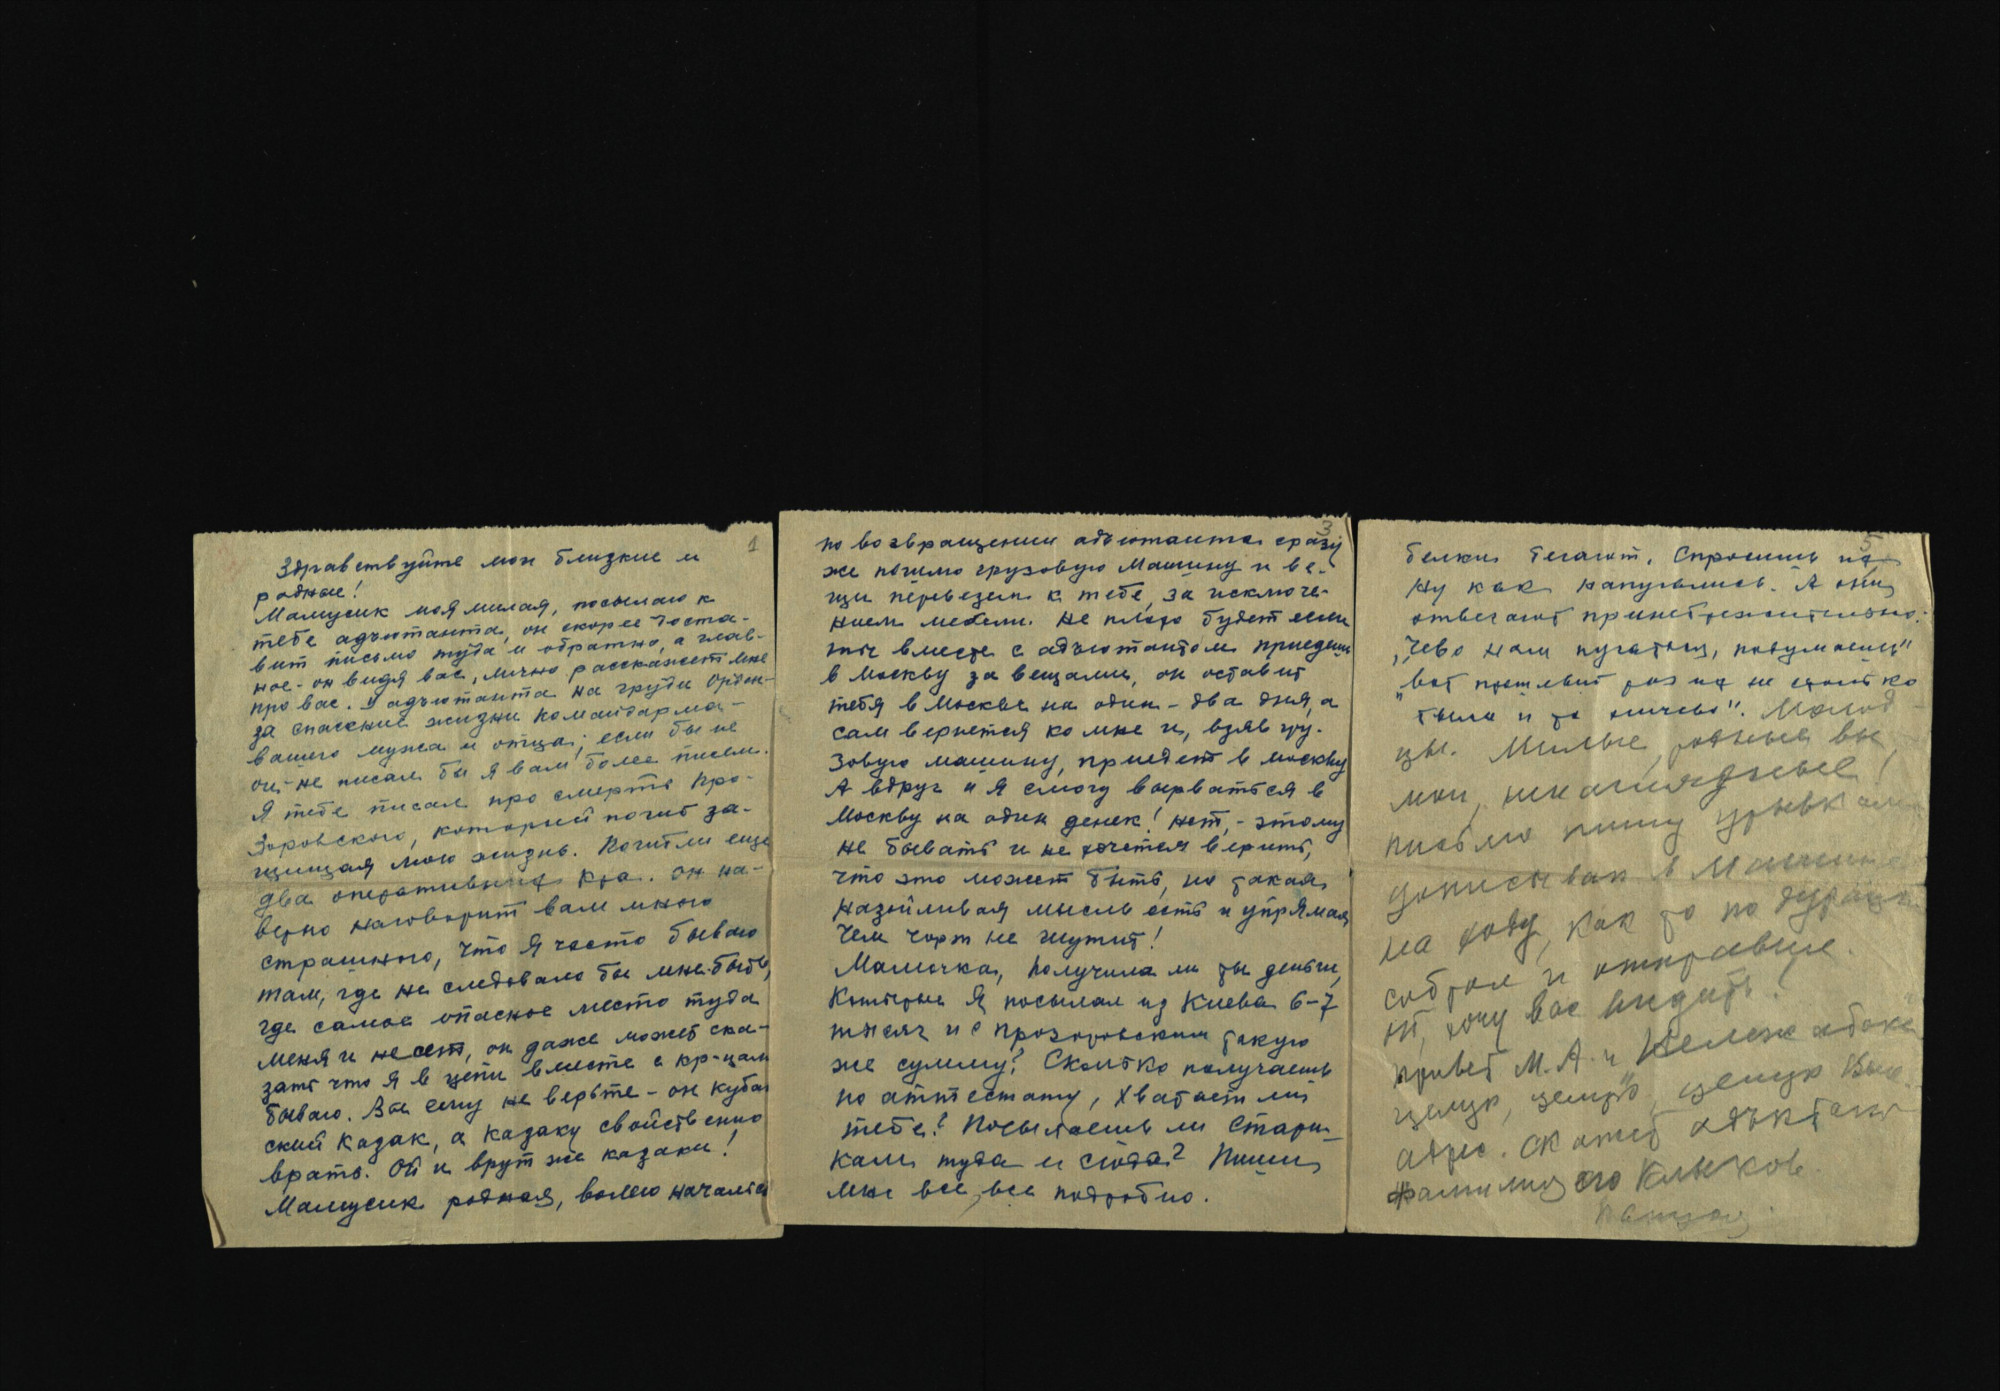 1
Здравствуйте мои близкие и
родные!
Мамусик моя милая, посылаю к
тебе адъютанта, он скорее доста-
вит письмо туда и обратно, а глав-
ное - он видя вас, лично расскажет мне
про вас. У адъютанта на груди Орден-
за спасение жизни командарма -
вашего мужа и отца; если бы не
он - не писал бы я вам более писем.
Я тебе писал про смерть Про-
зоровского, который погиб за-
щищая мою жизнь. Погибли еще
два оперативных кра. Он на-
верно наговорит вам много
страшного, что я часто бываю
там, где не следовало бы мне быть,
где самое опасное место туда
меня и несет, он даже может ска-
зать что я в цепи вместе с кр-цами
бываю. Вы ему не верьте - он кубан
ский казак, а казаку свойственно
врать. Ой и врут же казаки!
Мамусик родная, волею начальс
3
по возвращении адъютанта сразу
же пошлю грузовую машину и ве-
щи перевезем к тебе, за исключе-
нием мебели. Не плохо будет если
ты вместе с адъютантом приедешь
в Москву за вещами, он оставит
тебя в Москве на один - два дня, а
сам вернется ко мне и, взяв гру-
зовую машину, приедет в москву
А вдруг и я смогу вырваться в
Москву на один денек! Нет, - этому
не бывать и не хочется верить,
что это может быть, но такая
назойливая мысль есть и упрямая
Чем чорт не шутит!
Мамочка, получила ли ты деньги,
которые я посылал из Киева 6-7
тысяч и с Прозоровским такую
же сумму? Сколько получаешь
по аттестату, хватает ли
тебе? Посылаешь ли стари-
кам туда и сюда? Пиши
мне все, все подробно.
5
белки бегают. Спросишь их
Ну как напугались. А они
отвечают пренебрежительно:
"Чево нам пугаться, подумаешь"
"вот прошлый раз их не столько
было и то ничево". Молод-
цы. Милые, родные вы
мои, ненаглядные!
письмо пишу урывками
дописывал в машине
на ходу, как то по дурацки
собрал и отправил.
хочу вас видеть!
привет М. А. и
целую, целую, целую Ваш.
адрес. скажет адъютант
фамилия его Клыков.